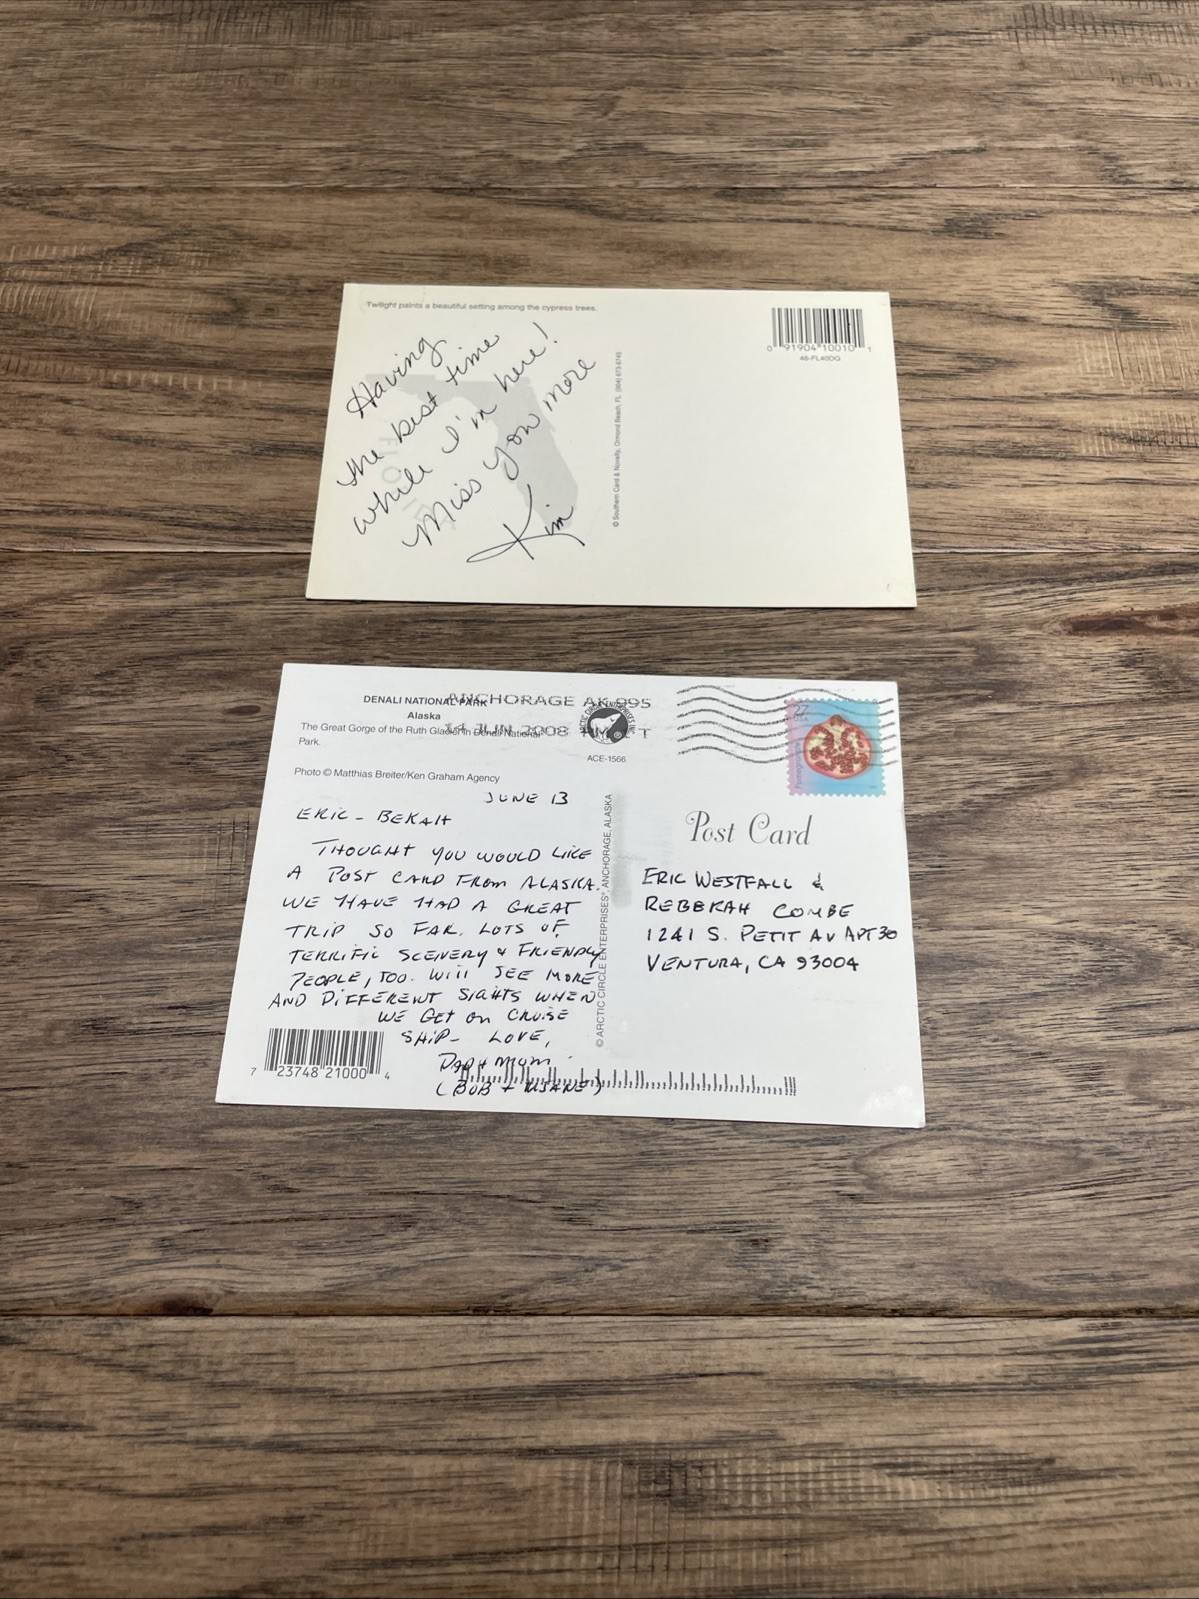 Twilight paints a beautiful setting among the cypress trees.
Having
the best time
while I'm here!
Miss you more
Kim
© Southern Card & Novelty, Ormond Beach, FL (904) 673-6745
0 91904 10010 1
46-FL40DG
DENALI NATIONAL PARK
Alaska
The Great Gorge of the Ruth Glacier in Denali National
Park.
Photo © Matthias Breiter/Ken Graham Agency
ANCHORAGE AK 995
14 JUN 2008
ARCTIC CIRCLE ENTERPRISES INC.
ACE-1566
27
USA
Pomegranate
JUNE 13
ERIC - BEKAH
THOUGHT YOU WOULD LIKE
A POST CARD FROM ALASKA.
WE HAVE HAD A GREAT
TRIP SO FAR. LOTS OF
TERRIFIC SCENERY & FRIENDLY
PEOPLE, TOO. Will SEE MORE
AND DIFFERENT SIGHTS WHEN
WE GET ON CRUISE
SHIP- LOVE,
DAD + MOM
(BOB +
7 23748 21000 4
© ARCTIC CIRCLE ENTERPRISES®, ANCHORAGE, ALASKA
Post Card
ERIC WESTFALL &
REBEKAH COMBE
1241 S. PETIT AV APT 30
VENTURA, CA 93004